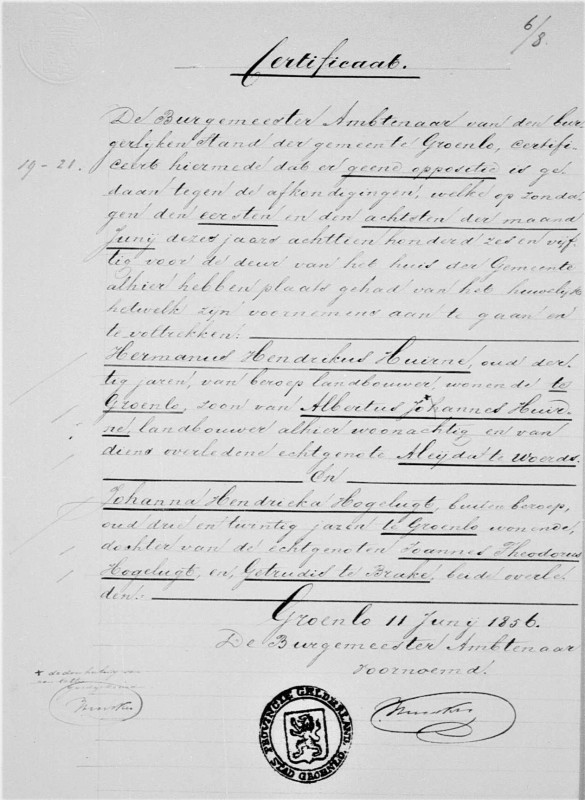 6/8.
Certificaat.
De Burgemeester Ambtenaar van den bur-
gerlijken Stand der gemeente Groenlo, certifi-
19-21. ceert hiermede dat er geene oppositie is ge-
daan tegen de afkondigingen, welke op zonda-
gen den eersten en den achtsten der maand
Junij dezes jaars achttien honderd zes en vijf-
tig voor de deur van het huis der Gemeente
alhier hebben plaats gehad van het huwelijk
hetwelk zijn voornemens aan te gaan en
te voltrekken:
Hermanus Hendrikus Huirne, oud der-
tig jaren, van beroep landbouwer, wonende te
Groenlo, zoon van Albertus Johannes Huir-
ne, landbouwer alhier woonachtig en van
diens overledene echtgenote Aleijda te Woerds.
En
Johanna Hendrieka Hogelugt, buiten beroep,
oud drie en twintig jaren te Groenlo wonende,
dochter van de echtgenoten Joannes Theodorus
Hogelugt, en Getrudis te Brake, beide overle-
den.
Groenlo 11 Junij 1856.
De Burgemeester Ambtenaar
Voornoemd.
PROVINCIE GELDERLAND.
STAD GROENLO.